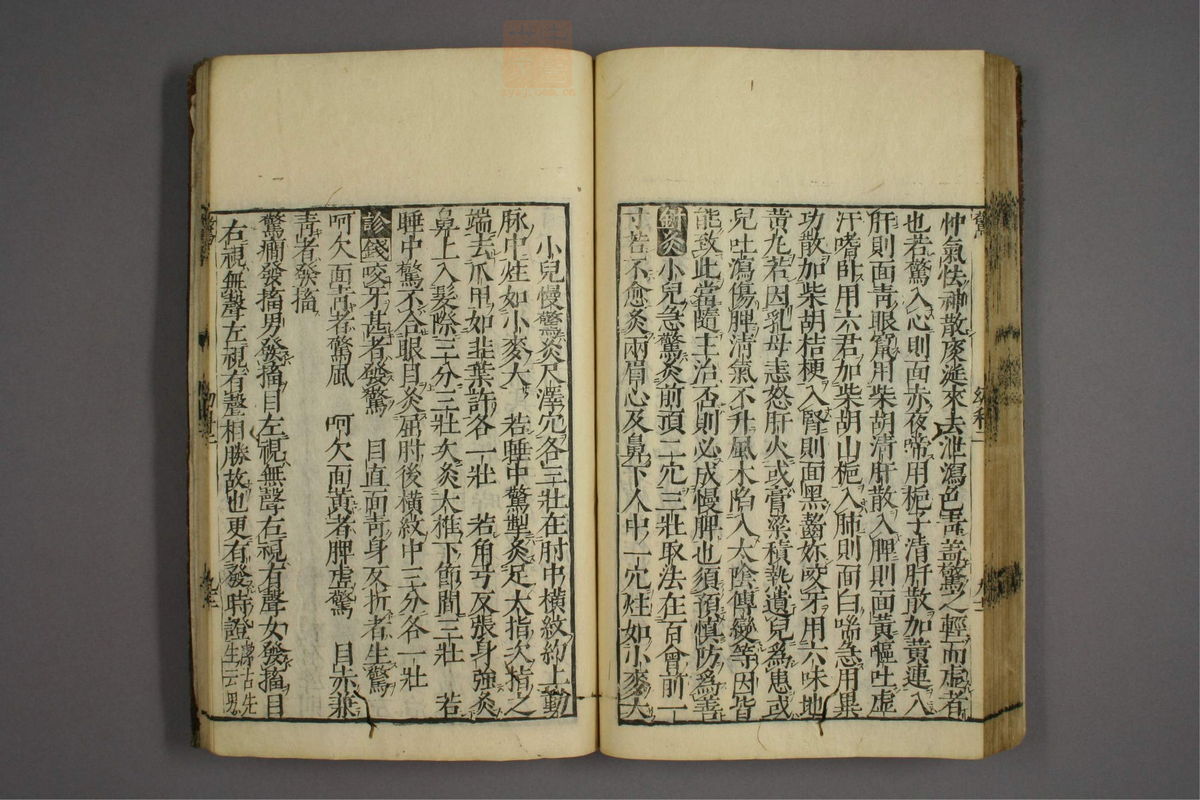 忡氣怯神散痰涎來去泄瀉色青蓋驚之輕而虛者
也若驚入心則面赤夜常用梔子清肝散加黃連入
肝則面青眼竄用柴胡清肝散入脾則面黃嘔吐虛
汗嗜卧用六君加柴胡山梔入肺則面白喘急用異
功散加柴胡桔梗入腎則面黑齧妳咬牙用六味地
黃丸若因乳母恚怒肝火或膏粱積熱遺兒爲患或
兒吐瀉傷脾清氣不升風木陷入太陰傳變等因皆
能致此當隨主治否則必成慢脾也須預慎防爲善
針灸小兒急驚灸前頂二穴三壯取法在百會前一
寸若不愈灸兩眉心及鼻下人中一穴炷如小麥大
小兒慢驚灸尺澤穴各三壯在肘中橫紋約上動
脉中炷如小麥大 若睡中驚掣灸足大指次指之
端去爪甲如韭葉許各一壯 若角弓反張身強灸
鼻上入髮際三分三壯次灸大椎下節間三壯 若
睡中驚不合眼目灸屈肘後橫紋中三分各一壯
診錢咬牙甚者發驚 目直面青身反折者生驚
呵欠面青者驚風 呵欠面黃者脾虛驚 目赤兼
青者發搐
驚癇發搐男發搐目左視無聲右視有聲女發搐目
右視無聲左視有聲相勝故也更有發時證
生云男